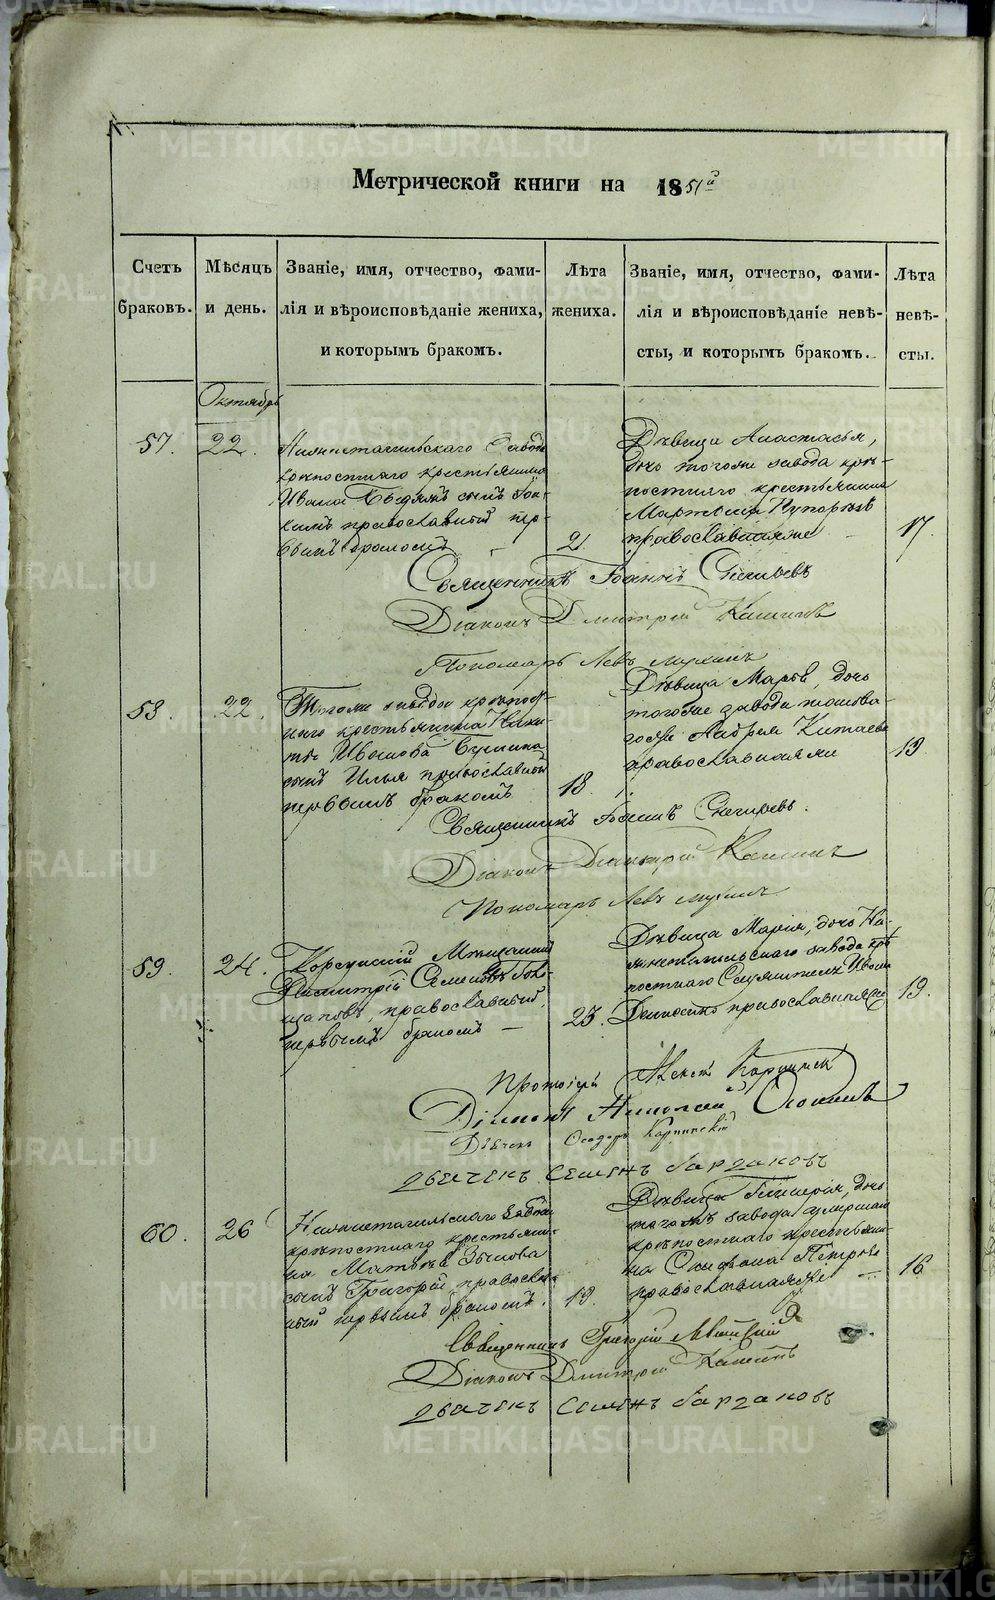 Метрической книги на 1851й
Счетъ браковъ.
Мѣсяцъ и день.
Званіе, имя, отчество, фами-
лія и вѣроисповѣданіе жениха,
и которымъ бракомъ.
Лѣта жениха.
Званіе, имя, отчество, фами-
лія и вѣроисповѣданіе невѣ-
сты, и которымъ бракомъ.
Лѣта невѣ-
сты.
Октябрь
57.
22.
Нижнетагильскаго завода
крѣпостнаго крестьянина
Ивана сынъ
православный пер-
вымъ бракомъ
21
Дѣвица Анастасья,
дочь тогоже завода крѣ-
постнаго крестьянина
православнаяже
17.
Священникъ Іоаннъ Снегиревъ
Діаконъ Дмитрій Кашинъ
Пономарь Левъ Мухинъ
58.
22.
Тогоже завода крѣпост-
наго крестьянина Ники-
ты Иванова
сынъ Илья православный
первымъ бракомъ
18.
Дѣвица Марья, дочь
тогоже завода таковa-
гоже Андрея Китаева
православнаяже
19.
Священникъ Іоаннъ Снегиревъ.
Діаконъ Димитрій Кашинъ
Пономарь Левъ Мухинъ
59.
24.
Мѣщанинъ
Димитрій Семеновъ
православный,
первымъ бракомъ
25.
Дѣвица Марія, дочь Ни-
жнетагильскаго завода крѣ-
постнаго Служителя Ивана
православнаяже
19.
Протоіерей Карпинск
Діаконъ Николай Осокинъ
Дьячекъ Ѳеодоръ Карпинскій
Дьячекъ Семенъ
60.
26
Нижнетагильскаго завода
крѣпостнаго крестьяни-
на Матвѣя Зыкова
сынъ Григорій православ-
ный первымъ бракомъ.
19.
Дѣвица Гликерія, дочь
тогожъ завода умершаго
крѣпостнаго крестьяни-
на Петрова
православнаяже
16
Священникъ Григорій
Діаконъ Дмитрій Кашинъ
Дьячекъ Семенъ
METRIKI.GASO-URAL.RU